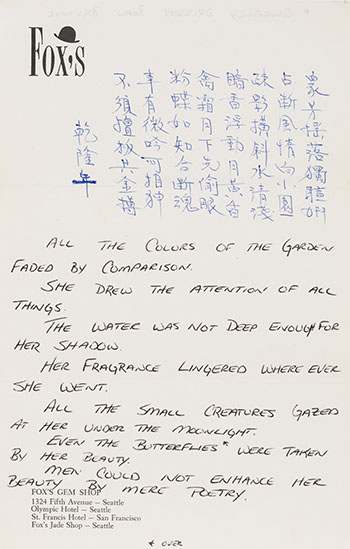 FOX'S
衆芳搖落獨暄妍
占斷風情向小園
疎影橫斜水清淺
暗香浮動月黃昏
禽霜月下先偷眼
粉蝶如知合斷魂
幸有微吟可相狎
不須檀板共金樽
乾隆年
ALL THE COLORS OF THE GARDEN
FADED BY COMPARISON.
SHE DREW THE ATTENTION OF ALL
THINGS.
THE WATER WAS NOT DEEP ENOUGH FOR
HER SHADOW.
HER FRAGRANCE LINGERED WHERE EVER
SHE WENT.
ALL THE SMALL CREATURES GAZED
AT HER UNDER THE MOONLIGHT.
EVEN THE BUTTERFLIES* WERE TAKEN
BY HER BEAUTY.
MEN COULD NOT ENHANCE HER
BEAUTY BY MERE POETRY.
FOX'S GEM SHOP
1324 Fifth Avenue – Seattle
Olympic Hotel – Seattle
St. Francis Hotel – San Francisco
Fox's Jade Shop – Seattle
* OVER